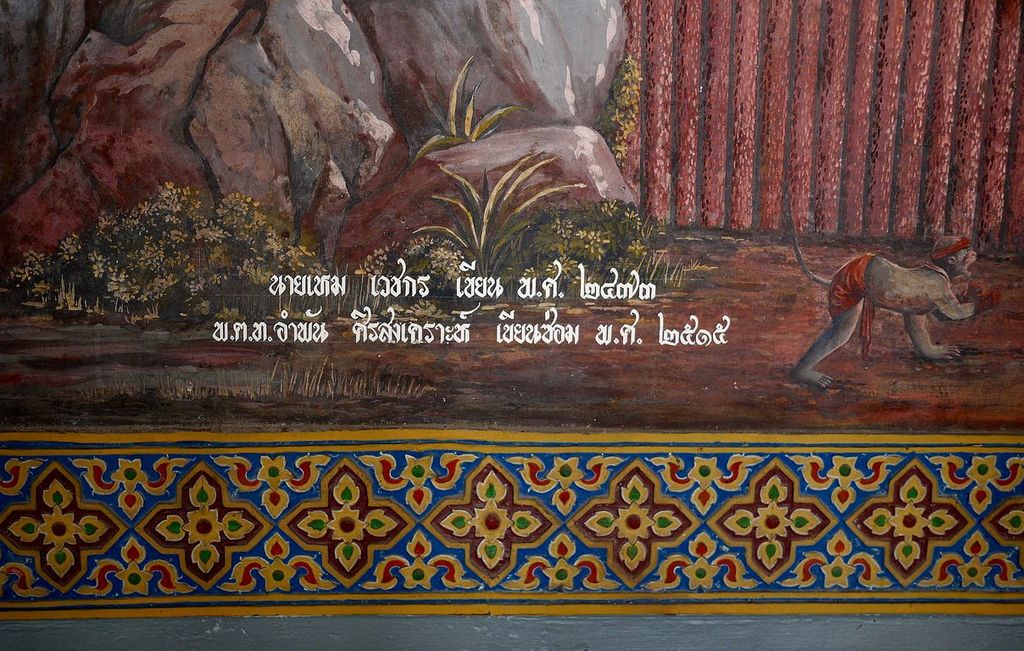 นายเหม เวชกร เขียน พ.ศ. ๒๔๗๓
พ.ต.ท.อำพัน ศีรสงเคราะห์ เขียนซ่อม พ.ศ. ๒๕๑๕